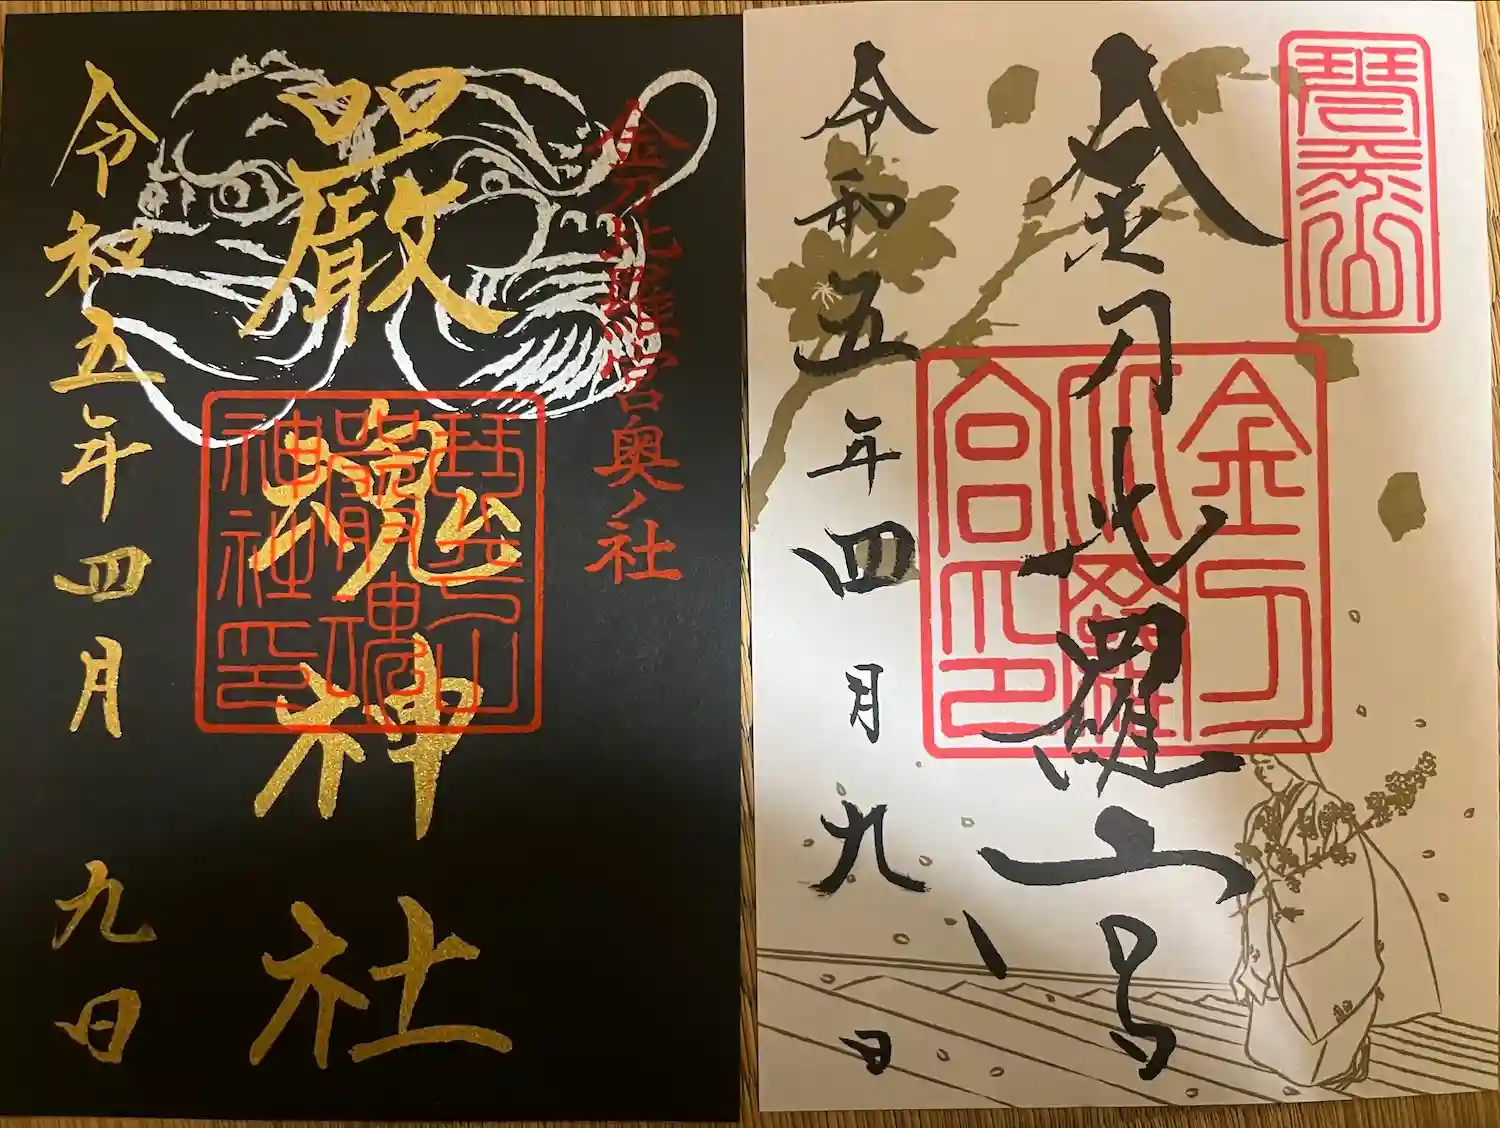 琴平山
金刀比羅宮
金刀
比羅
宮印
令和五年四月九日
金刀比羅宮奥ノ社
嚴魂神社
琴平山
嚴魂
神社印
令和五年四月九日